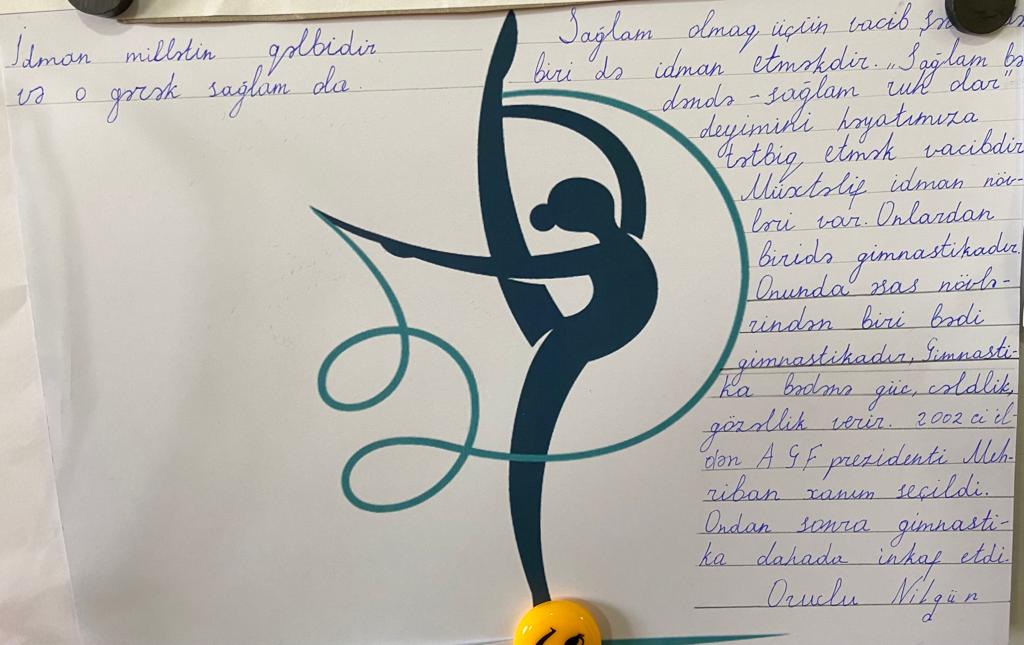 İdman millətin qəlbidir
və o gərək sağlam da.
Sağlam olmaq üçün vacib
biri də idman etməkdir. „Sağlam bə
dəndə - sağlam ruh dar"
deyimini həyatımıza
tətbiq etmək vacibdir
Müxtəlif idman növ-
ləri var. Onlardan
biridə gimnastikadır.
Onunda əsas növlə-
rindən biri bədi
gimnastikadır, Gimnasti-
ka bədənə güc, cəldlik,
gözəllik verir. 2002 ci il-
dən AGF prezidenti Meh-
riban xanım seçildi.
Ondan sonra gimnasti-
ka dahada inkaf etdi.
Oruclu Nilgün